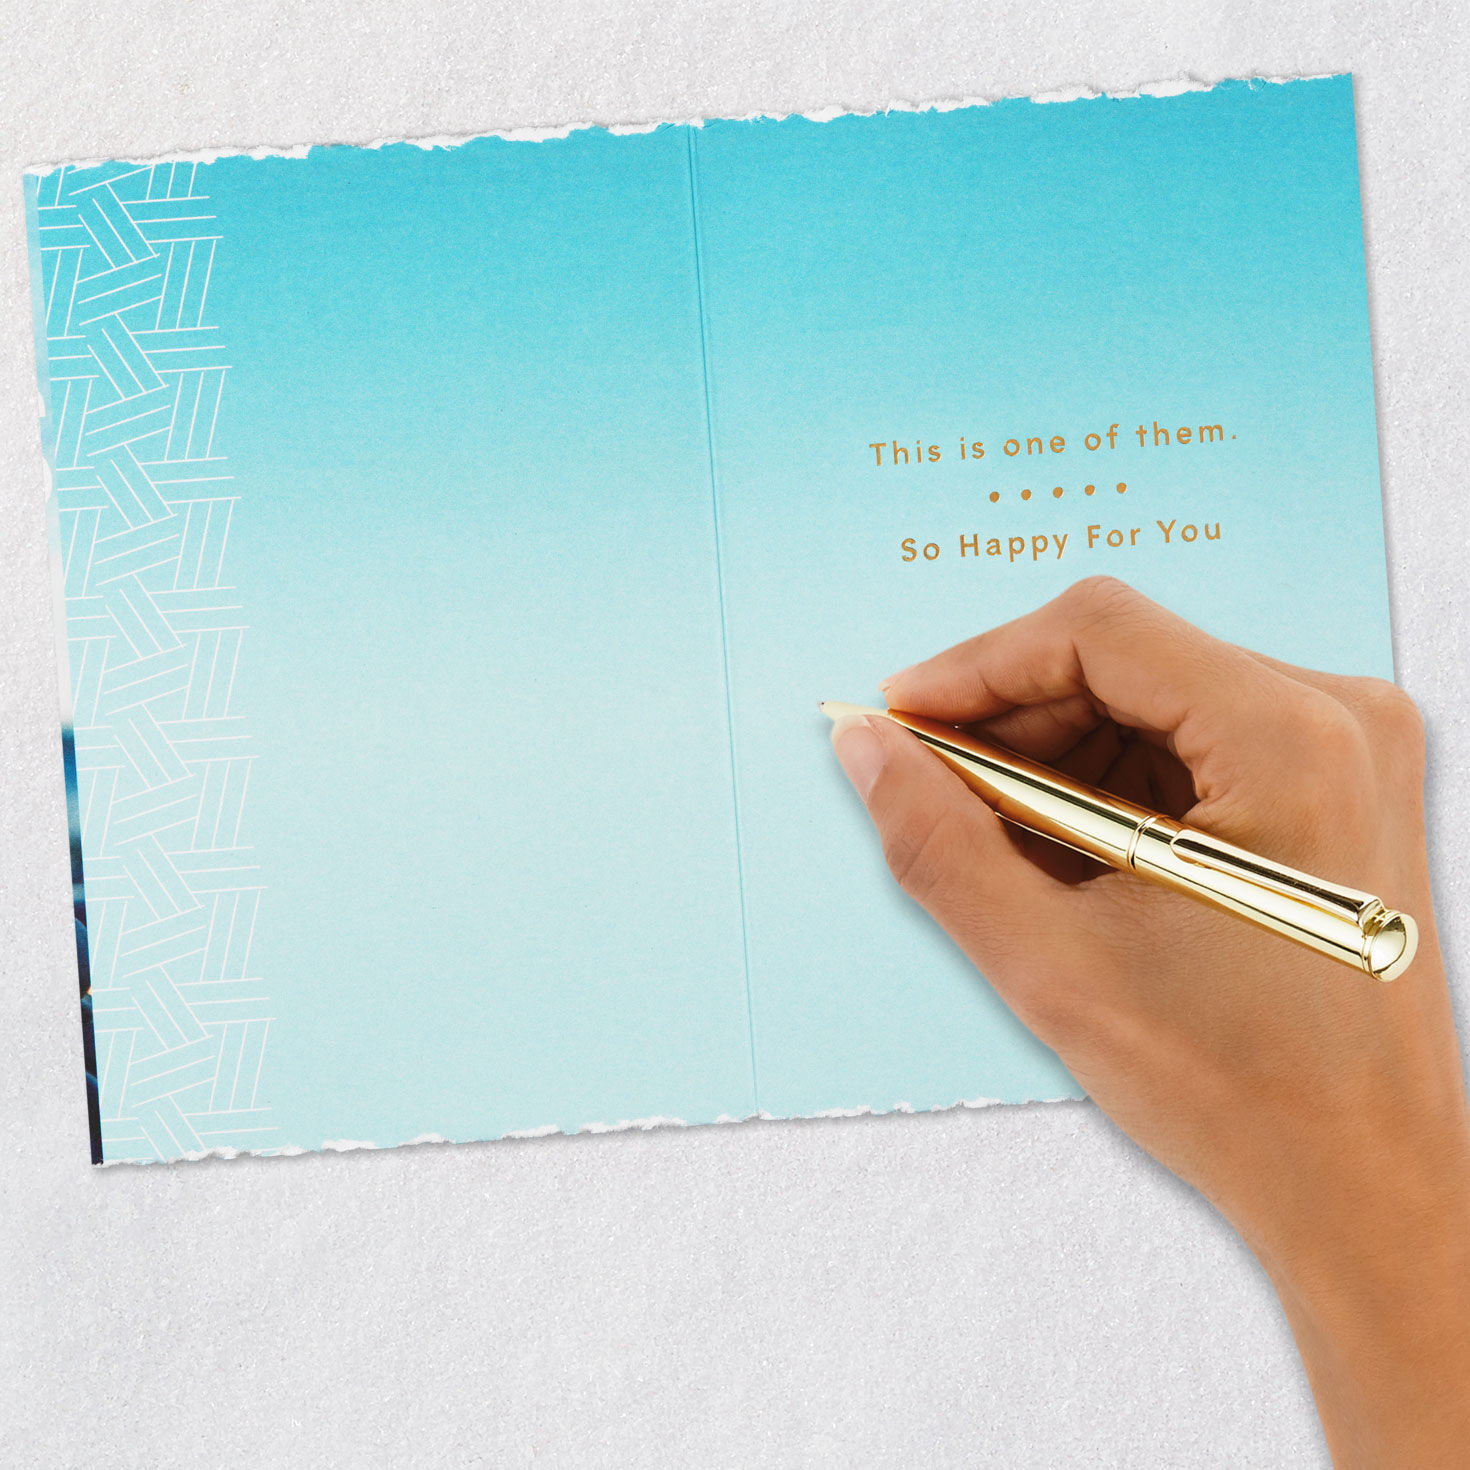 This is one of them.
So Happy For You